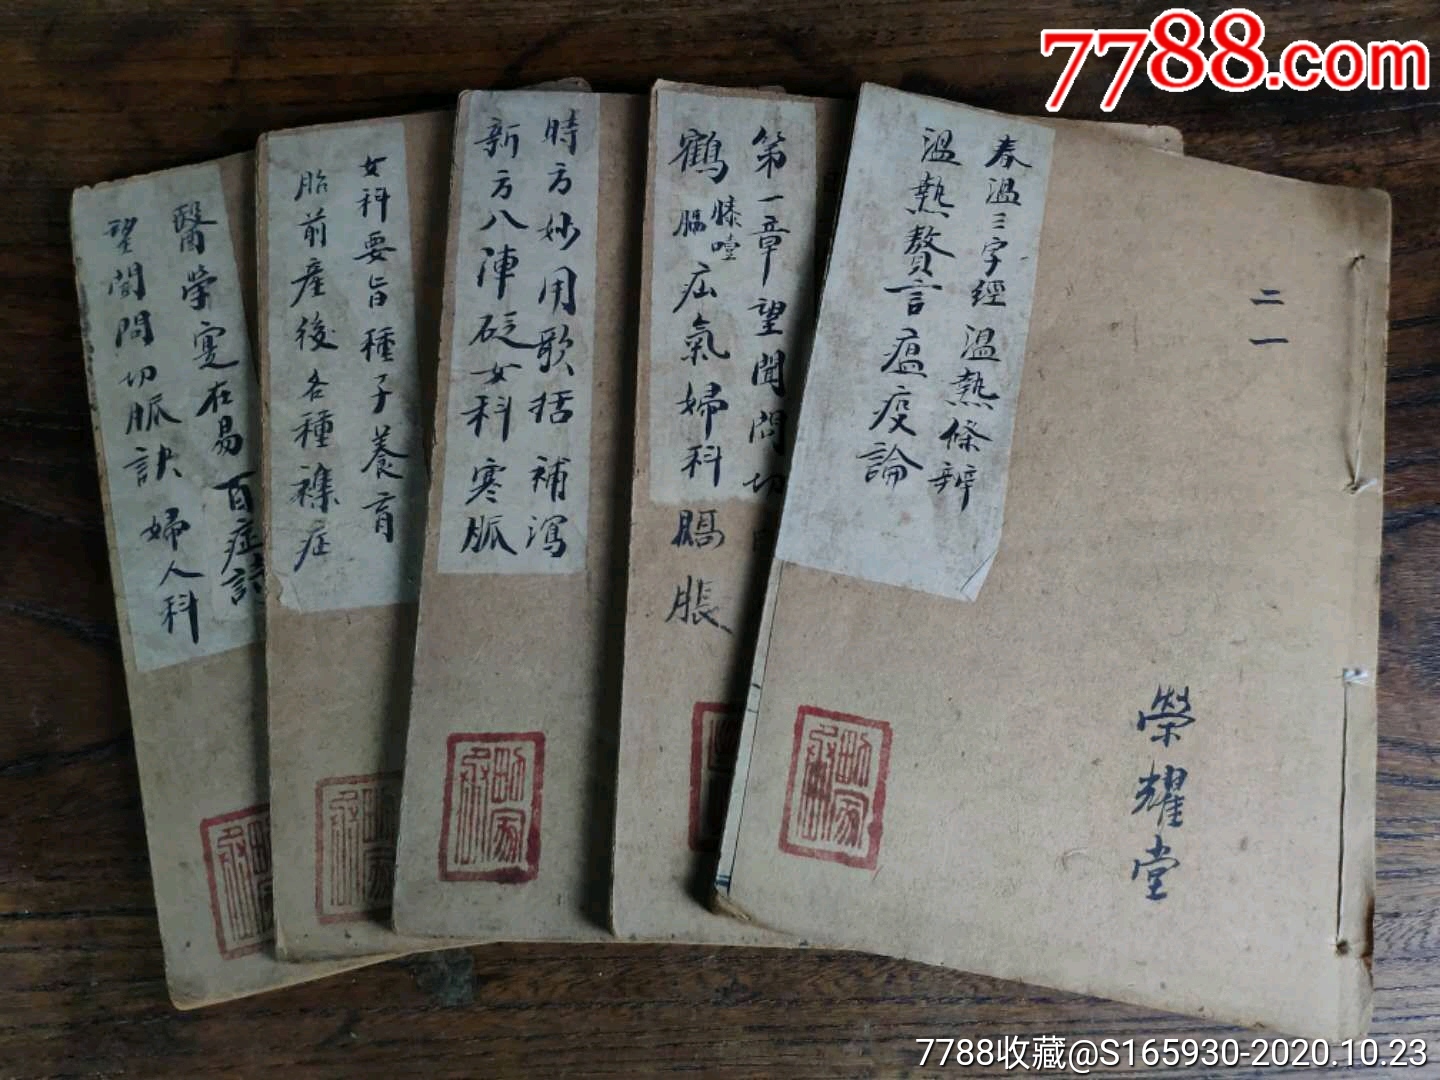 7788.com
春溫三字經 溫熱條辨
溫熱贅言瘟疫論
二一
榮耀堂
第一章望聞問切
鶴膝
疝氣婦科膈脹
時方妙用歌括補瀉
新方八陣砭女科寒脈
女科要旨種子養育
胎前產後各種襍症
醫學寔在易百症詩
望聞問切脈訣婦人科
7788收藏@S165930-2020.10.23